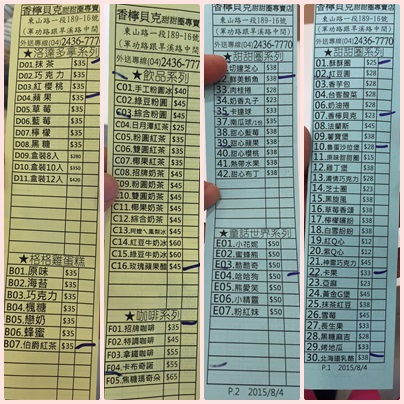 香檸貝克甜甜圈專賣店
東山路一段189-16號
(軍功路跟旱溪路中間)
外送專線(04)2436-7777
D01.抹茶 $35
D02.巧克力 $35
D03.紅櫻桃 $35
D04.蘋果 $35
D05.草莓 $35
D06.藍莓 $35
D07.檸檬 $35
D08.黑糖 $35
D09.盒裝8入 $280
D10.盒裝10入 $350
D11.盒裝12入 $420
★格格雞蛋糕
B01.原味 $35
B02.海苔 $35
B03.巧克力 $35
B04.楓糖 $35
B05.戀奶 $35
B06.蜂蜜 $35
B07.伯爵紅茶 $35
香檸貝克甜甜圈專賣店
東山路一段189-16號
(軍功路跟旱溪路中間)
外送專線(04)2436-7777
★飲品系列
C01.手工粉圓 $40
C02.綠豆粉圓 $40
C03.綜合粉圓 $40
C04.日月潭紅茶 $25
C05.粉圓紅茶 $35
C06.雙圓紅茶 $35
C07.椰果紅茶 $35
C08.招牌奶茶 $45
C09.粉圓奶茶 $45
C10.雙圓奶茶 $45
C11.椰果奶茶 $45
C12.綜合奶茶 $45
C14.紅豆牛奶冰 $60
C15.綠豆牛奶冰 $60
C16.玫瑰蘋果醋 $45
★咖啡系列
F01.招牌咖啡 $35
F02.特調咖啡 $45
F03.拿鐵咖啡 $55
F04.卡布奇諾 $55
F05.焦糖瑪奇朵 $65
香檸貝克甜甜圈專賣店
東山路一段189-16號
(軍功路跟旱溪路中間)
外送專線(04)2436-7777
★甜甜圈系列
33.肉桂捲 $28
34.奶香丸子 $28
35.卡達球 $28
38.甜心藍莓 $38
39.甜心蘋果 $38
40.甜心櫻桃 $38
41.熱帶水果 $38
42.甜心布丁 $38
★童話世界系列
E01.小花妮 $50
E02.蜜蜂熊 $50
E03.酷酷奇 $50
E04.哈哈狗 $50
E05.熊愛笑 $50
E06.小精靈 $50
E07.粉紅妹 $50
P.2 2015/8/4
香檸貝克甜甜圈專賣店
東山路一段189-16號
(軍功路跟旱溪路中間)
外送專線(04)2436-7777
★甜甜圈系列
01.酥酥圈 $25
02.紅豆圓 $28
03.香芋包 $28
04.台客酸菜 $28
06.奶油捲 $28
07.香檸貝克 $23
08.法蘭斯 $45
09.薯寶堡 $45
10.魯蛋沙拉堡 $28
11.原味甜甜圈 $15
12.雞丁堡 $38
14.芝士圈 $38
15.黑旋風 $38
16.草莓香頌 $38
17.檸檬繽紛 $38
18.白雲紛紛 $38
19.紅Q心 $12
20.紫Q心 $12
21.神靈巧克力 $45
22.卡果 $33
23.亞麻 $23
24.黃金Q堡 $45
25.抹茶紅豆 $38
26.雪莓 $45
27.長生果 $33
28.黑糖麻吉 $28
29.烤地瓜 $33
30.北海道乳酪 $38
P.1 2015/8/4